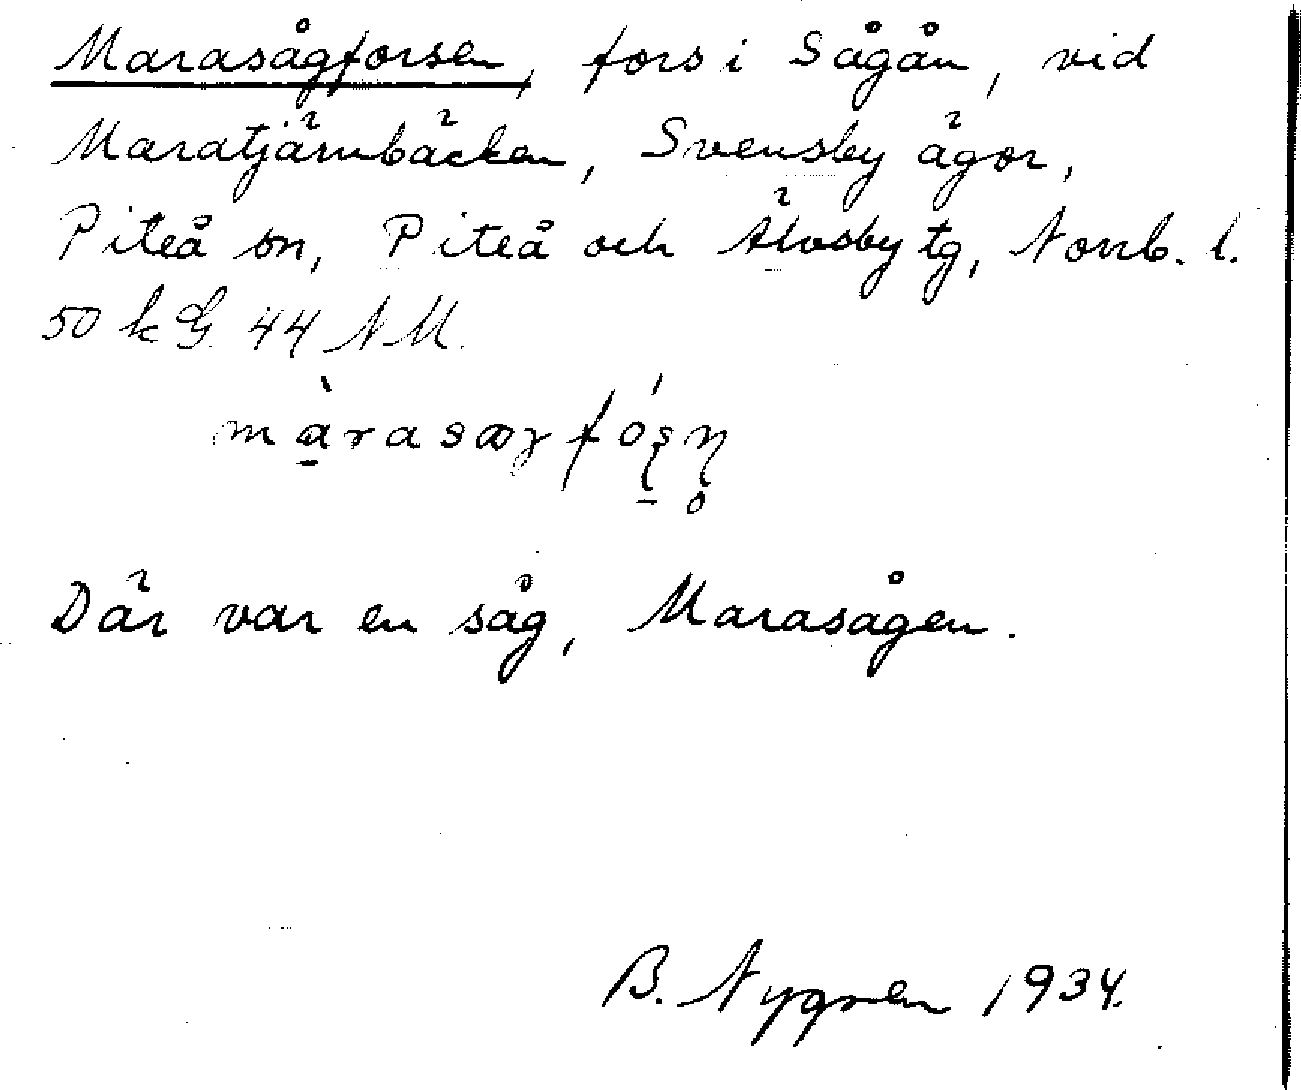 Marasågforsen, fors i Sågån, vid
Maratjärnbäcken, Svensby ägor,
Piteå sn, Piteå och Älvsby tg, Norrb. l.
50 k G 44 NM.
màrasꝏɣfǫ́ʂṇ̥
Där var en såg, Marasågen.
B. Nygren 1934.